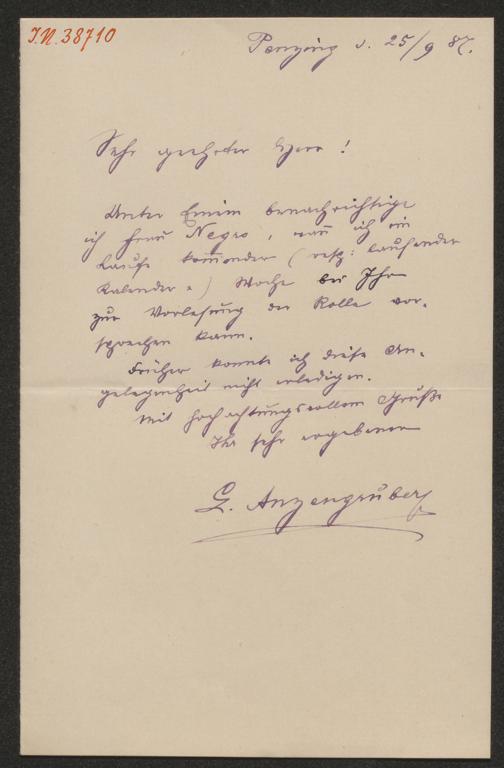 I.N. 38710
Penzing d. 25/9 87.
Sehr geehrter Herr!
Unter Einem benachrichtige
ich Frau Negro, wañ ich im
Laufe kom̃ender (resp: laufender
Kalender-) Woche bei Ihr
zur Vorlesung der Rolle vor-
sprechen kann.
Früher konnte ich diese An-
gelegenheit nicht erledigen.
Mit hochachtungsvollem Gruße
Ihr sehr ergebener
L. Anzengruber